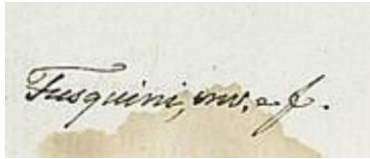 Fusquini, inv. e f.